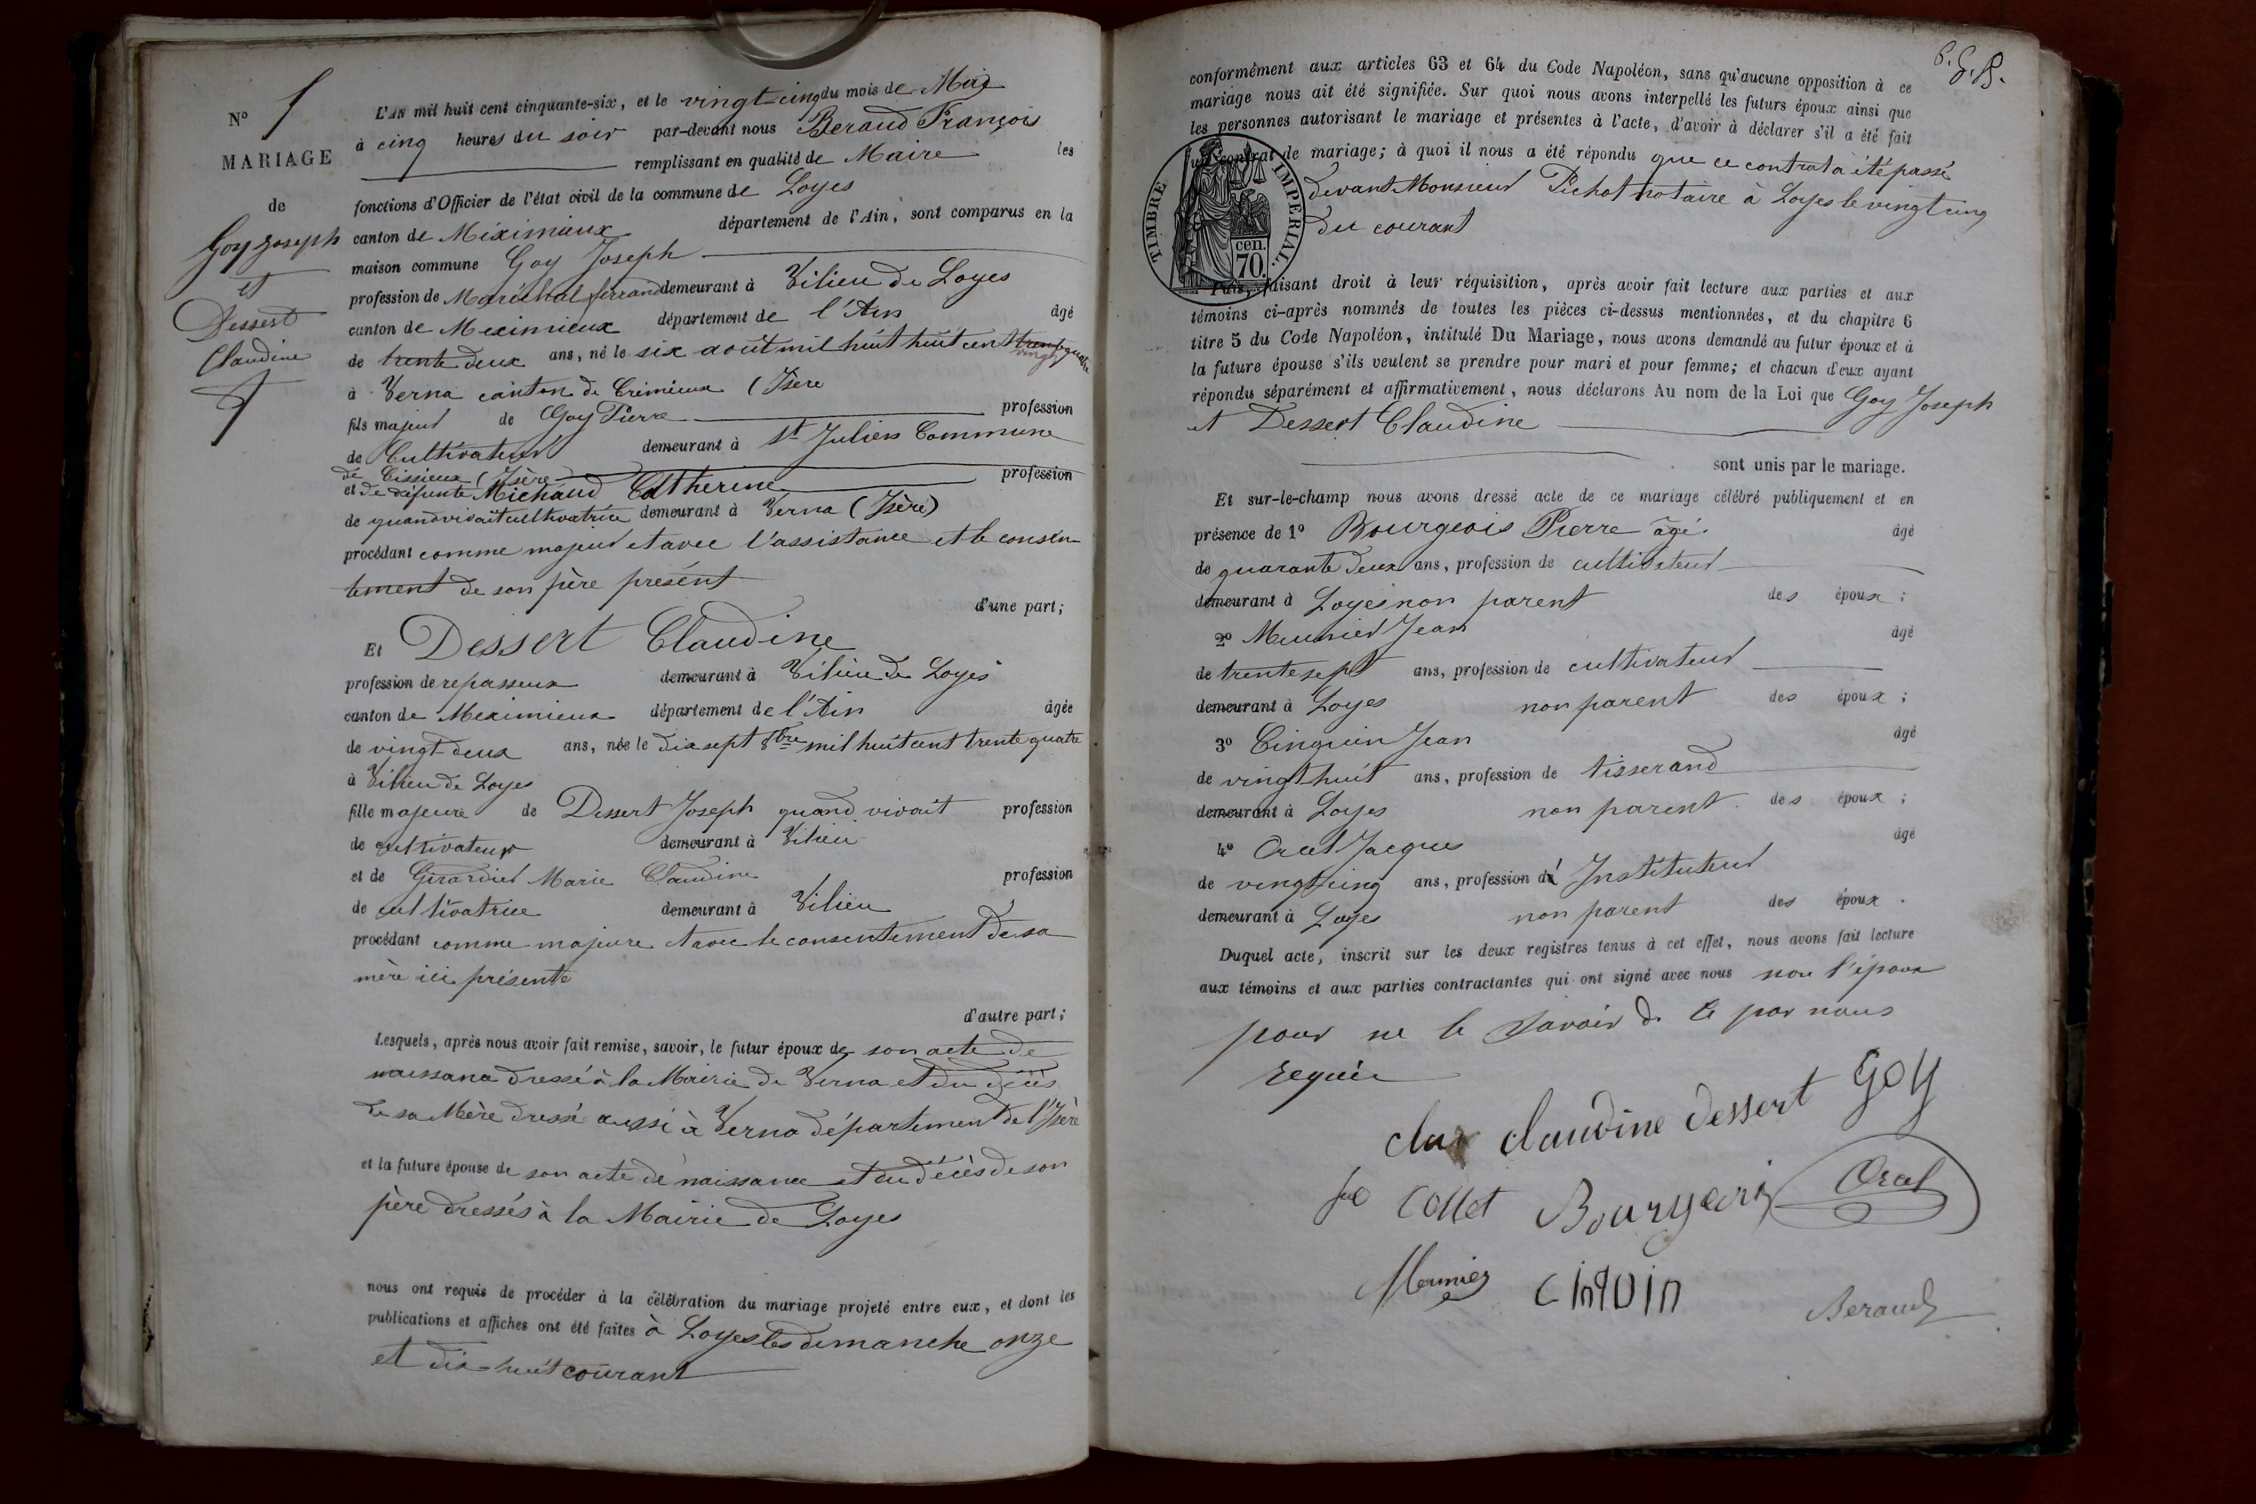 N° 
MARIAGE
de
Goy Joseph
et
Dessert
Claudine
L'AN mil huit cent cinquante-six, et le vingt cinq du mois de Mai
à cinq heures du soir par-devant nous Beraud François
remplissant en qualité de Maire les
fonctions d'Officier de l'état civil de la commune de Loyes
canton de Meximieux département de l'Ain, sont comparus en la
maison commune Goy Joseph
profession de Maréchal ferrand demeurant à Vilieu de Loyes
canton de Meximieux département de l'Ain âgé
de trente deux ans, né le six août mil huit huit cent vingt quatre
à Verna canton de Crémieux (Isère
fils majeur de Goy Pierre profession
de Cultivateur demeurant à St Julien Commune
de Cissieux (Isère
et de défunte Michaud Catherine profession
de quand vivait cultivatrice demeurant à Verna (Isère)
procédant comme majeur et avec l'assistance et le consen-
tement de son père présent
d'une part;
Et Dessert Claudine
profession de repasseuse demeurant à Vilieu de Loyes
canton de Meximieux département de l'Ain âgée
de vingt deux ans, née le dix sept 8bre mil huit cent trente quatre
à Vilieu de Loyes
fille majeure de Dessert Joseph quand vivait profession
de cultivateur demeurant à Vilieu
et de Girardier Marie Claudine profession
de cultivatrice demeurant à Vilieu
procédant comme majeure et avec le consentement de sa
mère ici présente
d'autre part;
Lesquels, après nous avoir fait remise, savoir, le futur époux de son acte de
naissance dressé à la Mairie de Verna et du décès
de sa Mère dressé aussi à Verna département de l'Isère
et la future épouse de son acte de naissance et du décès de son
père dressés à la Mairie de Loyes
nous ont requis de procéder à la célébration du mariage projeté entre eux, et dont les
publications et affiches ont été faites à Loyes les dimanche onze
et dix-huit courant
conformément aux articles 63 et 64 du Code Napoléon, sans qu'aucune opposition à ce
mariage nous ait été signifiée. Sur quoi nous avons interpellé les futurs époux ainsi que
les personnes autorisant le mariage et présentes à l'acte, d'avoir à déclarer s'il a été fait
un contrat de mariage; à quoi il nous a été répondu que ce contrat a été passé
devant Monsieur Pichat notaire à Loyes le vingt cinq
du courant
TIMBRE IMPERIAL.
cen.
70.
Puis, faisant droit à leur réquisition, après avoir fait lecture aux parties et aux
témoins ci-après nommés de toutes les pièces ci-dessus mentionnées, et du chapitre 6
titre 5 du Code Napoléon, intitulé Du Mariage, nous avons demandé au futur époux et à
la future épouse s'ils veulent se prendre pour mari et pour femme; et chacun d'eux ayant
répondu séparément et affirmativement, nous déclarons Au nom de la Loi que Goy Joseph
et Dessert Claudine
sont unis par le mariage.
Et sur-le-champ nous avons dressé acte de ce mariage célébré publiquement et en
présence de 1° Bourgeois Pierre âgé âgé
de quarante deux ans, profession de cultivateur
demeurant à Loyes non parent des époux;
2° Meunier Jean âgé
de trente sept ans, profession de cultivateur
demeurant à Loyes non parent des époux;
3° Cinquin Jean âgé
de vingt huit ans, profession de tisserand
demeurant à Loyes non parent des époux;
4° Orcet Jacques âgé
de vingt cinq ans, profession d' Instituteur
demeurant à Loyes non parent des époux.
Duquel acte, inscrit sur les deux registres tenus à cet effet, nous avons fait lecture
aux témoins et aux parties contractantes qui ont signé avec nous non l'époux
pour ne le savoir de ce par nous
requis
claudine dessert goy
collet Bourgeois Orcet
Meunier cinquin Beraud